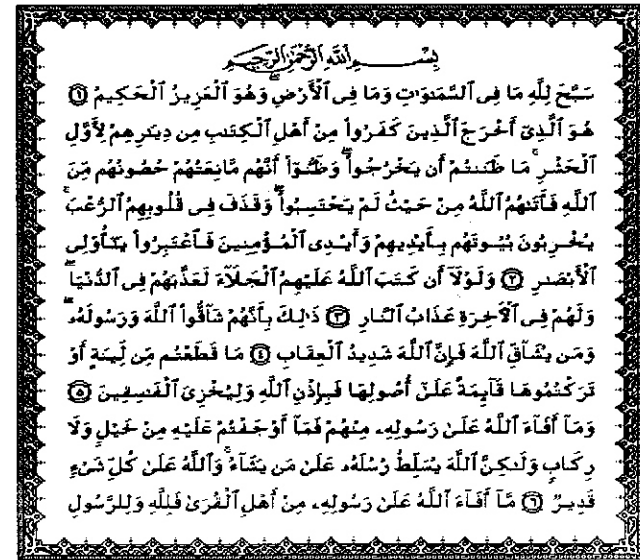 بِسْمِ ٱللَّهِ ٱلرَّحْمَٰنِ ٱلرَّحِيمِ
سَبَّحَ لِلَّهِ مَا فِى ٱلسَّمَٰوَٰتِ وَمَا فِى ٱلْأَرْضِ وَهُوَ ٱلْعَزِيزُ ٱلْحَكِيمُ ١
هُوَ ٱلَّذِىٓ أَخْرَجَ ٱلَّذِينَ كَفَرُوا۟ مِنْ أَهْلِ ٱلْكِتَٰبِ مِن دِيَٰرِهِمْ لِأَوَّلِ
ٱلْحَشْرِ ۚ مَا ظَنَنتُمْ أَن يَخْرُجُوا۟ ۖ وَظَنُّوٓا۟ أَنَّهُم مَّانِعَتُهُمْ حُصُونُهُم مِّنَ
ٱللَّهِ فَأَتَىٰهُمُ ٱللَّهُ مِنْ حَيْثُ لَمْ يَحْتَسِبُوا۟ ۖ وَقَذَفَ فِى قُلُوبِهِمُ ٱلرُّعْبَ ۚ
يُخْرِبُونَ بُيُوتَهُم بِأَيْدِيهِمْ وَأَيْدِى ٱلْمُؤْمِنِينَ فَٱعْتَبِرُوا۟ يَٰٓأُو۟لِى
ٱلْأَبْصَٰرِ ٢ وَلَوْلَآ أَن كَتَبَ ٱللَّهُ عَلَيْهِمُ ٱلْجَلَآءَ لَعَذَّبَهُمْ فِى ٱلدُّنْيَا ۖ
وَلَهُمْ فِى ٱلْءَاخِرَةِ عَذَابُ ٱلنَّارِ ٣ ذَٰلِكَ بِأَنَّهُمْ شَآقُّوا۟ ٱللَّهَ وَرَسُولَهُۥ ۖ
وَمَن يُشَآقِّ ٱللَّهَ فَإِنَّ ٱللَّهَ شَدِيدُ ٱلْعِقَابِ ٤ مَا قَطَعْتُم مِّن لِّينَةٍ أَوْ
تَرَكْتُمُوهَا قَآئِمَةً عَلَىٰٓ أُصُولِهَا فَبِإِذْنِ ٱللَّهِ وَلِيُخْزِىَ ٱلْفَٰسِقِينَ ٥
وَمَآ أَفَآءَ ٱللَّهُ عَلَىٰ رَسُولِهِۦ مِنْهُمْ فَمَآ أَوْجَفْتُمْ عَلَيْهِ مِنْ خَيْلٍ وَلَا
رِكَابٍ وَلَٰكِنَّ ٱللَّهَ يُسَلِّطُ رُسُلَهُۥ عَلَىٰ مَن يَشَآءُ ۚ وَٱللَّهُ عَلَىٰ كُلِّ شَىْءٍ
قَدِيرٌ ٦ مَّآ أَفَآءَ ٱللَّهُ عَلَىٰ رَسُولِهِۦ مِنْ أَهْلِ ٱلْقُرَىٰ فَلِلَّهِ وَلِلرَّسُولِ